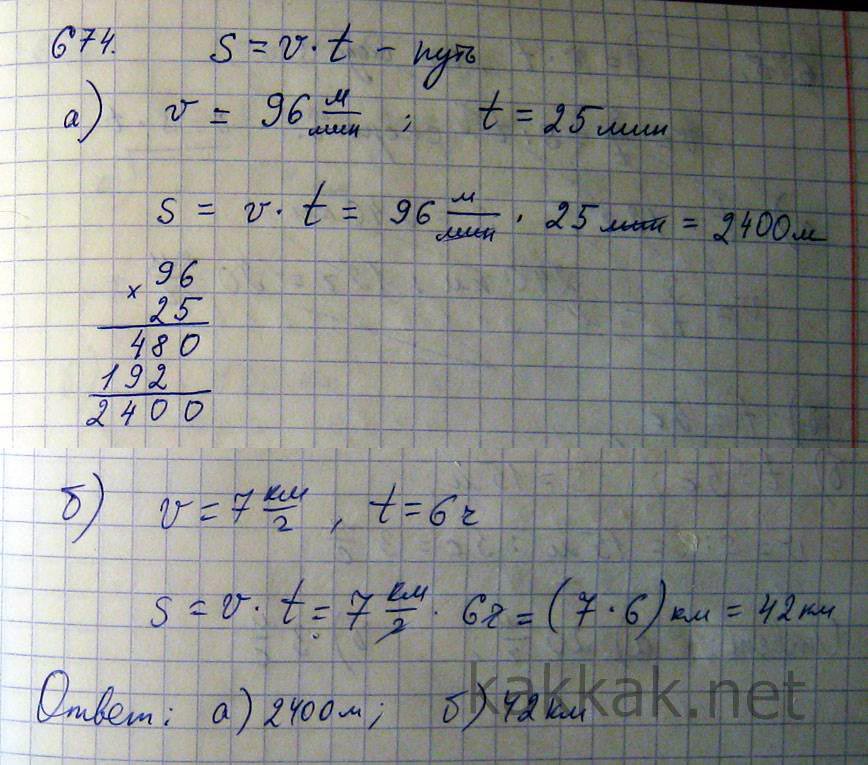 674. S = v · t – путь
а) v = 96 м/мин ; t = 25 мин
S = v · t = 96 м/мин · 25 мин = 2400 м
96
× 25
480
192
2400
б) v = 7 км/ч , t = 6 ч
S = v · t = 7 км/ч · 6 ч = (7 · 6) км = 42 км
kakkak.net
Ответ: а) 2400 м; б) 42 км